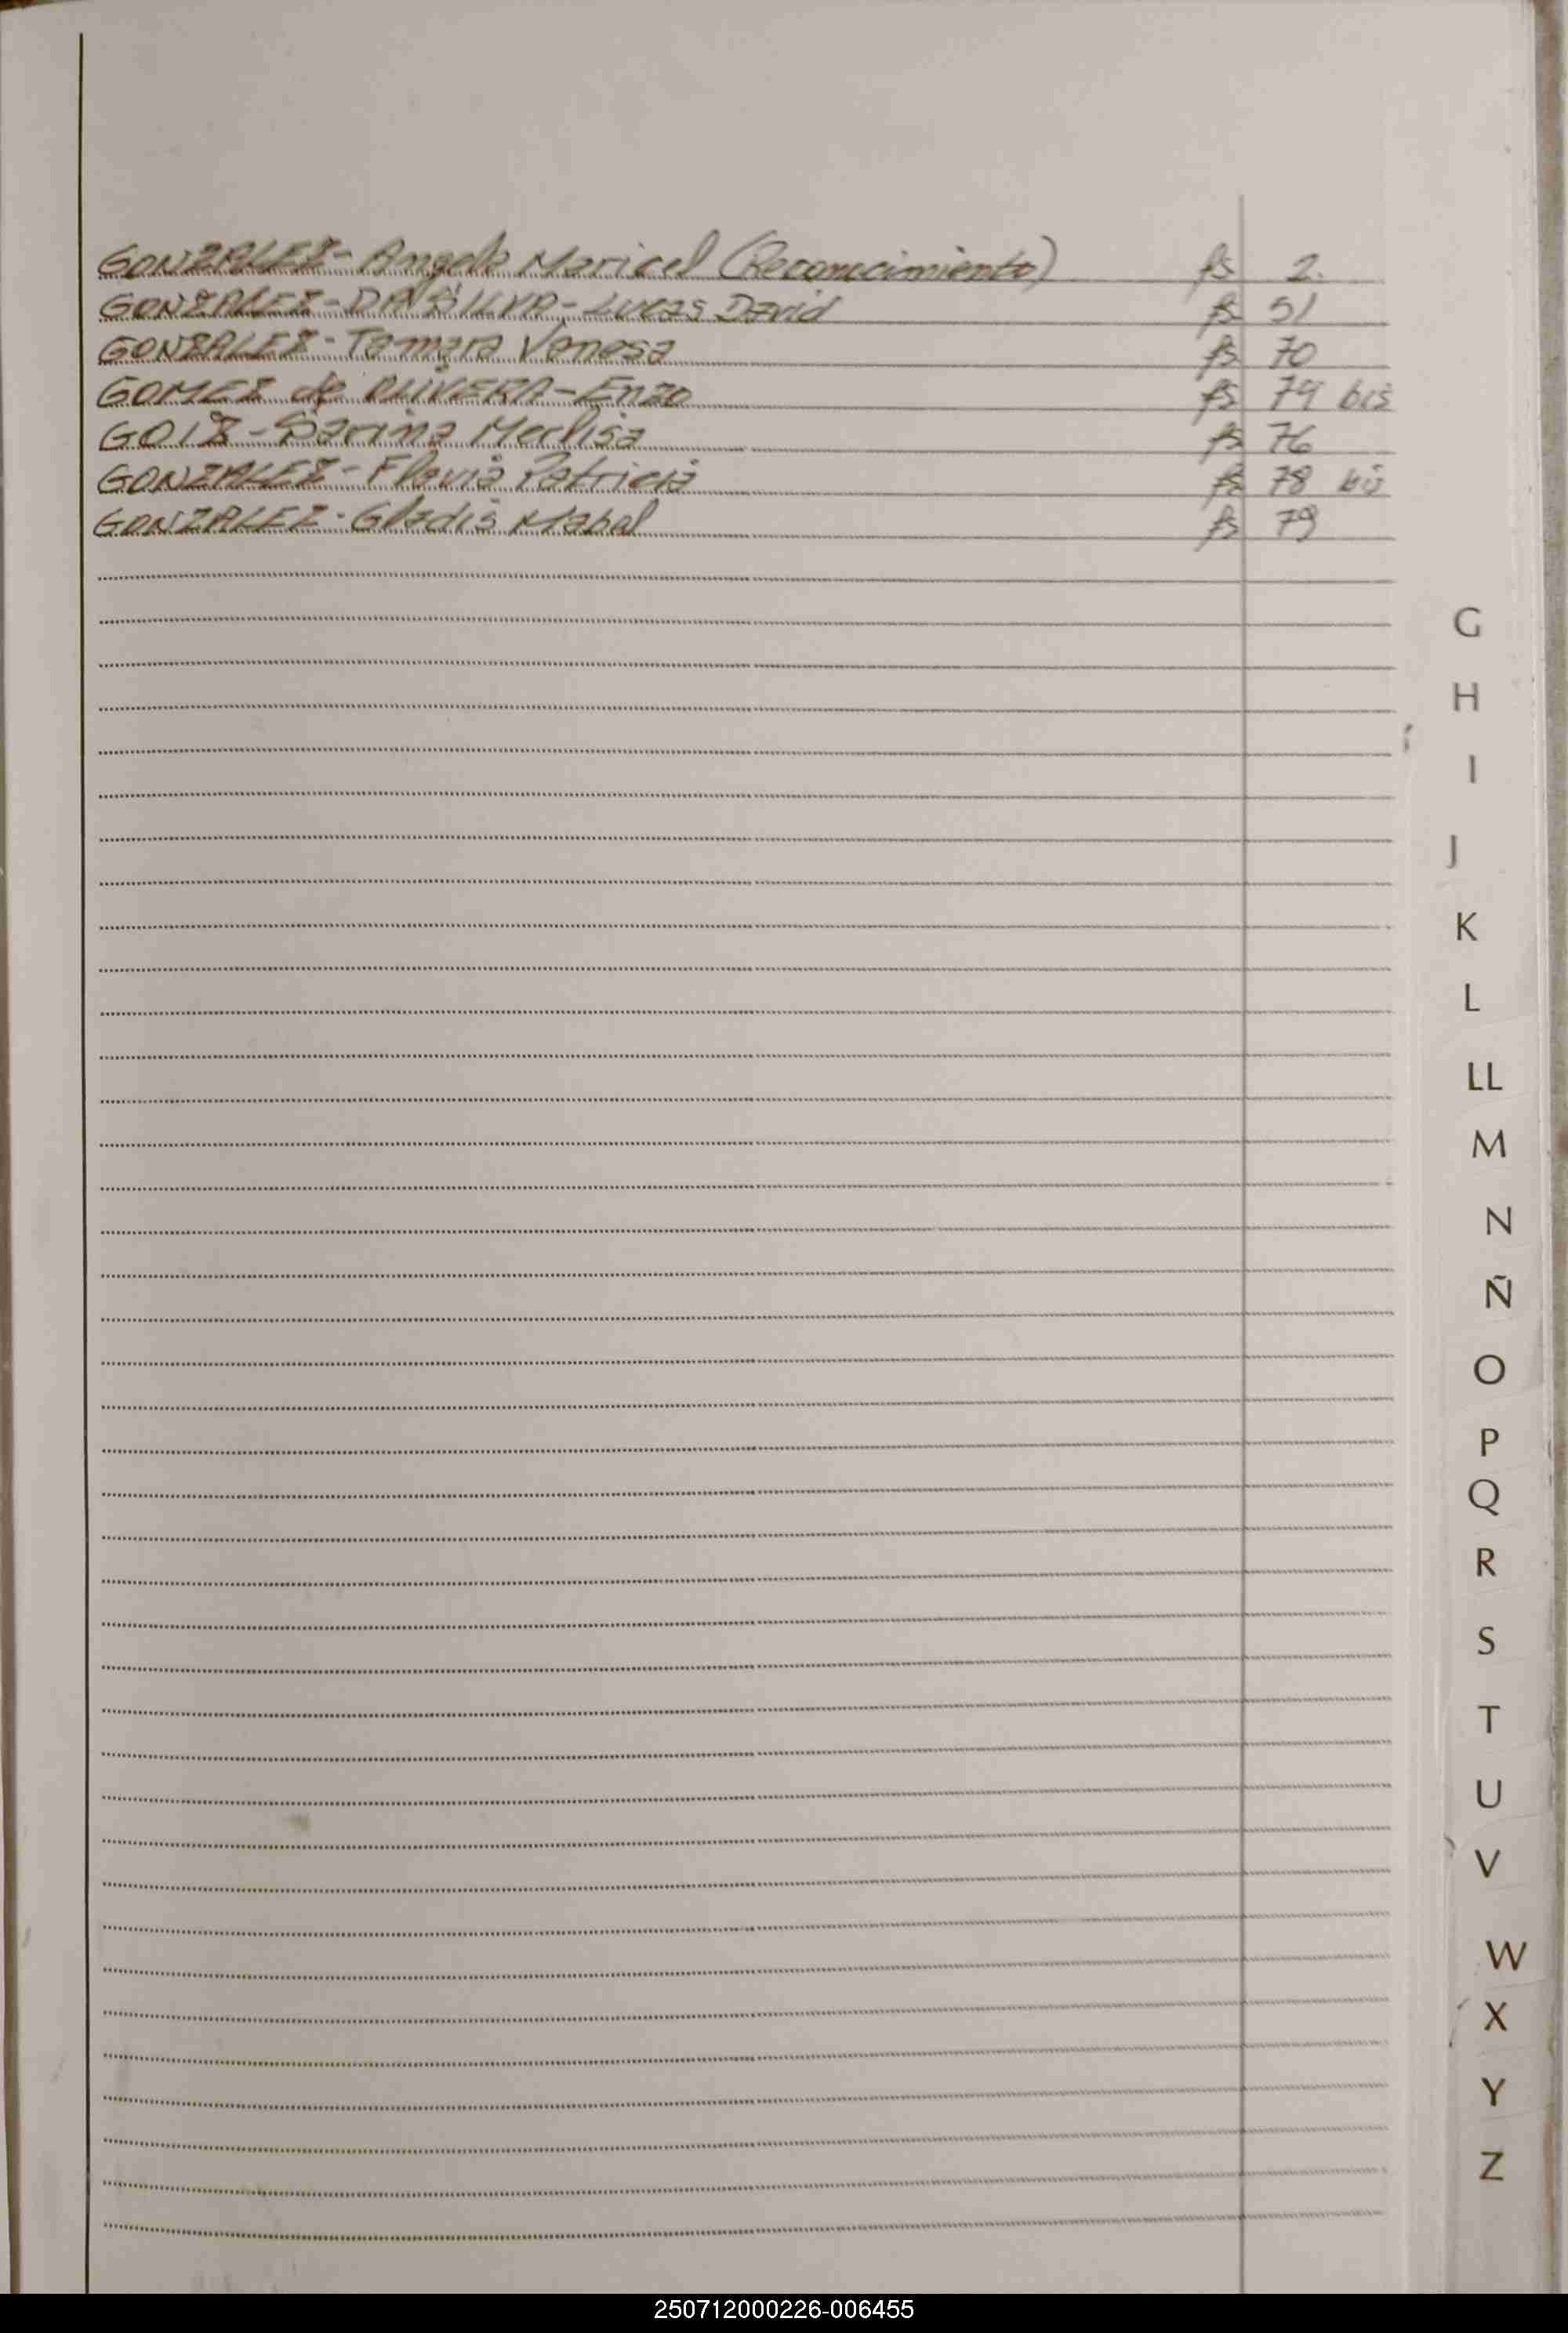 GONZALEZ - Angela Maricel (Reconocimiento) fs 2.
GONZALEZ - DA SILVA - Lucas David fs 51
GONZALEZ - Tamara Vanesa fs 70
GOMEZ de OLIVERA - Enzo fs 74 bis
GOIZ - Darina Merlisa fs 76
GONZALEZ - Flavia Patricia fs 78 bis
GONZALEZ - Gladis Mabal fs 79
G
H
I
J
K
L
LL
M
N
Ñ
O
P
Q
R
S
T
U
V
W
X
Y
Z
250712000226-006455